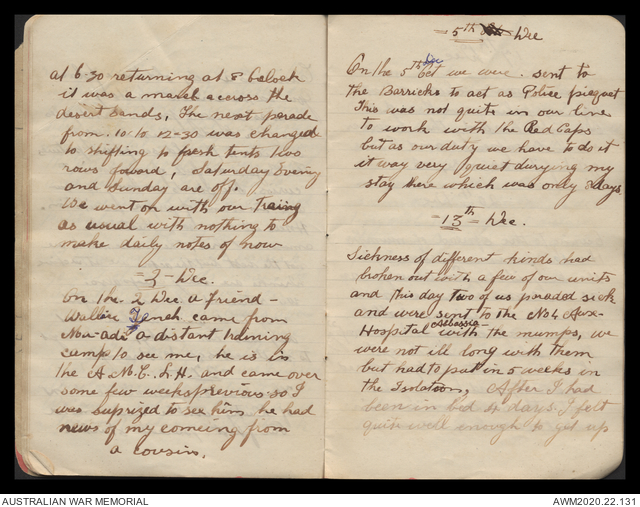 at 6-30 returning at 8 Oclock
it was a march accross the
desert sands, The next parade
from 10 to 12-30 was changed
to shifting to fresh tents two
rows foward, Saturday Evening
and Sunday are off.
We went on with our traing
as usual with nothing to
make daily notes of now
=3= Dec.
On the 2 Dec a friend -
Wallie Tench came from
Ma-adi a distant training
camp to see me, he is in
the A.M.C. L.H. and came over
some few weeks previous so I
was suprized to see him he had
news of my comeing from
a cousins.
=5th= Dec
On the 5th Dec we were sent to
the Barricks to act as Police picquet
This was not quite in our line
to work with the Red Caps
but as our duty we have to do it
it way very quiet durying my
stay there which was only 2 days
=13th= Dec.
Sickness of different kinds had
broken out with a few of our units
and this day two of us paraded sick
and were sent to the No 4 Aux-
Hospital Abbassia with the mumps, we
were not ill long with them
but had to put in 5 weeks in
the Isolatoon, After I had
been in bed 4 days I felt
quite well enough to get up
AUSTRALIAN WAR MEMORIAL
AWM2020.22.131